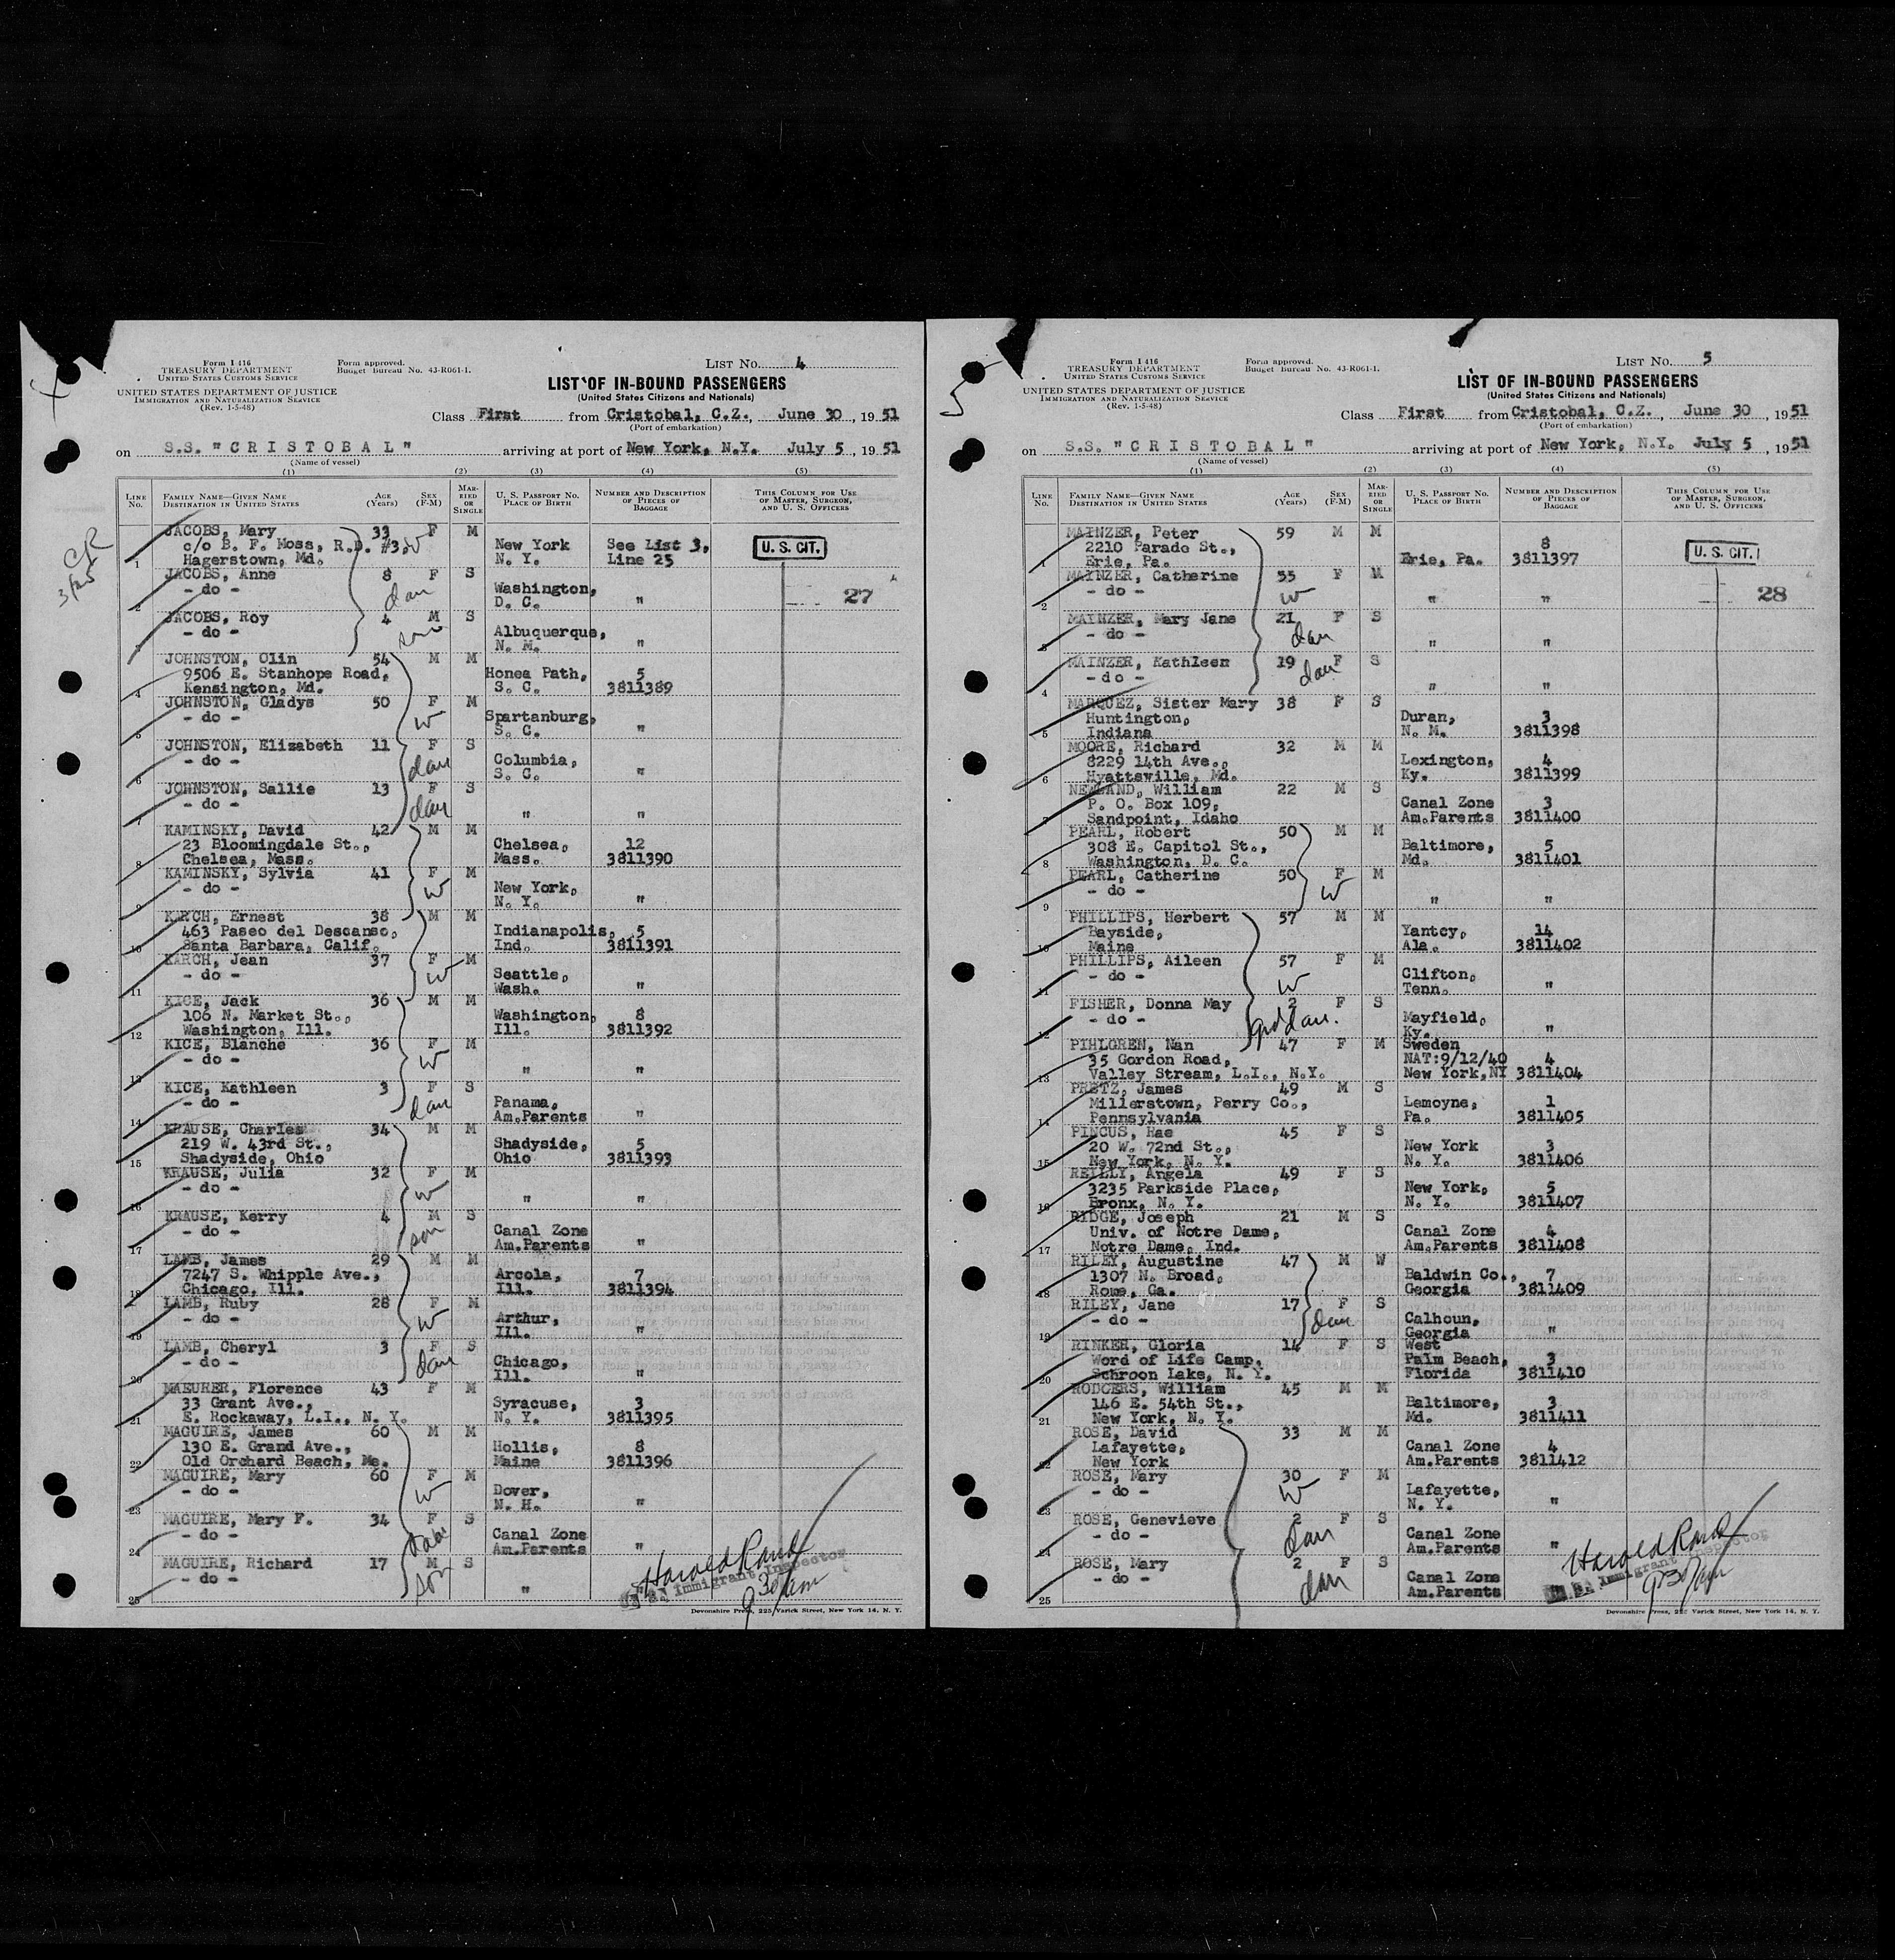 Form I 416
TREASURY DEPARTMENT
UNITED STATES CUSTOMS SERVICE
UNITED STATES DEPARTMENT OF JUSTICE
IMMIGRATION AND NATURALIZATION SERVICE
(Rev. 1-5-48)
Form approved.
Budget Bureau No. 43-R061-1.
LIST No. 4
LIST OF IN-BOUND PASSENGERS
(United States Citizens and Nationals)
Class First from Cristobal, C.Z., June 30, 1951
(Port of embarkation)
on S.S. "CRISTOBAL" arriving at port of New York, N.Y. July 5, 1951
(Name of vessel)
(1) (2) (3) (4) (5)
LINE No. FAMILY NAME—GIVEN NAME DESTINATION IN UNITED STATES AGE (Years) SEX (F-M) MARRIED OR SINGLE U. S. PASSPORT NO. PLACE OF BIRTH NUMBER AND DESCRIPTION OF PIECES OF BAGGAGE THIS COLUMN FOR USE OF MASTER, SURGEON, AND U. S. OFFICERS
JACOBS, Mary 33 F M
c/o B. F. Moss, R.D. #3, w New York See List 3, U. S. CIT.
1 Hagerstown, Md. N. Y. Line 25
JACOBS, Anne 8 F S
- do - dau Washington, 27
2 D. C. "
JACOBS, Roy 4 M S
- do - son Albuquerque,
3 N. M. "
JOHNSTON, Olin 54 M M
9506 E. Stanhope Road, Honea Path, 5
4 Kensington, Md. S. C. 3811389
JOHNSTON, Gladys 50 F M
- do - w Spartanburg,
5 S. C. "
JOHNSTON, Elizabeth 11 F S
- do - dau Columbia,
6 S. C. "
JOHNSTON, Sallie 13 F S
- do - dau
7 " "
KAMINSKY, David 42 M M
23 Bloomingdale St., Chelsea, 12
8 Chelsea, Mass. Mass. 3811390
KAMINSKY, Sylvia 41 F M
- do - w New York,
9 N. Y. "
KARCH, Ernest 38 M M
463 Paseo del Descanso, Indianapolis, 5
10 Santa Barbara, Calif. Ind. 3811391
KARCH, Jean 37 F M
- do - w Seattle,
11 Wash. "
KICE, Jack 36 M M
106 N. Market St., Washington, 8
12 Washington, Ill. Ill. 3811392
KICE, Blanche 36 F M
- do - w
13 " "
KICE, Kathleen 3 F S
- do - dau Panama,
14 Am.Parents "
KRAUSE, Charles 34 M M
219 W. 43rd St., Shadyside, 5
15 Shadyside, Ohio Ohio 3811393
KRAUSE, Julia 32 F M
- do - w
16 " "
KRAUSE, Kerry 4 M S
- do - son Canal Zone
17 Am.Parents "
LAMB, James 29 M M
7247 S. Whipple Ave., Arcola, 7
18 Chicago, Ill. Ill. 3811394
LAMB, Ruby 28 F M
- do - w Arthur,
19 Ill. "
LAMB, Cheryl 3 F S
- do - dau Chicago,
20 Ill. "
MAEURER, Florence 43 F M
33 Grant Ave., Syracuse, 3
21 E. Rockaway, L.I., N. Y. N. Y. 3811395
MAGUIRE, James 60 M M
130 E. Grand Ave., Hollis, 8
22 Old Orchard Beach, Me. Maine 3811396
MAGUIRE, Mary 60 F M
- do - w Dover,
23 N. H. "
MAGUIRE, Mary F. 34 F S
- do - Canal Zone
24 Am.Parents "
MAGUIRE, Richard 17 M S
- do - son
25 "
Harold Rand
Immigrant Inspector
9 30 am
Devonshire Press, 225 Varick Street, New York 14, N. Y.
5
Form I 416
TREASURY DEPARTMENT
UNITED STATES CUSTOMS SERVICE
UNITED STATES DEPARTMENT OF JUSTICE
IMMIGRATION AND NATURALIZATION SERVICE
(Rev. 1-5-48)
Form approved.
Budget Bureau No. 43-R061-1.
LIST No. 5
LIST OF IN-BOUND PASSENGERS
(United States Citizens and Nationals)
Class First from Cristobal, C.Z., June 30, 1951
(Port of embarkation)
on S.S. "CRISTOBAL" arriving at port of New York, N.Y. July 5, 1951
(Name of vessel)
(1) (2) (3) (4) (5)
LINE No. FAMILY NAME—GIVEN NAME DESTINATION IN UNITED STATES AGE (Years) SEX (F-M) MARRIED OR SINGLE U. S. PASSPORT NO. PLACE OF BIRTH NUMBER AND DESCRIPTION OF PIECES OF BAGGAGE THIS COLUMN FOR USE OF MASTER, SURGEON, AND U. S. OFFICERS
MAINZER, Peter 59 M M
2210 Parade St., 8 U. S. CIT.
1 Erie, Pa. Erie, Pa. 3811397
MAINZER, Catherine 55 F M
- do - w 28
2 " "
MAINZER, Mary Jane 21 F S
- do - dau
3 " "
MAINZER, Kathleen 19 F S
- do - dau
4 " "
MARQUEZ, Sister Mary 38 F S
Huntington, Duran, 3
5 Indiana N. M. 3811398
MOORE, Richard 32 M M
8229 14th Ave., Lexington, 4
6 Hyattsville, Md. Ky. 3811399
NEWLAND, William 22 M S
P. O. Box 109, Canal Zone 3
7 Sandpoint, Idaho Am.Parents 3811400
PEARL, Robert 50 M M
308 E. Capitol St., Baltimore, 5
8 Washington, D. C. Md. 3811401
PEARL, Catherine 50 F M
- do - w
9 " "
PHILLIPS, Herbert 57 M M
Bayside, Yantcy, 14
10 Maine Ala. 3811402
PHILLIPS, Aileen 57 F M
- do - w Clifton,
11 Tenn. "
FISHER, Donna May 2 F S
- do - grd dau. Mayfield,
12 Ky. "
PIHLGREN, Nan 47 F M Sweden
35 Gordon Road, NAT:9/12/40 4
13 Valley Stream, L.I., N.Y. New York,NY 3811404
PRETZ, James 49 M S
Millerstown, Perry Co., Lemoyne, 1
14 Pennsylvania Pa. 3811405
PINCUS, Rae 45 F S
20 W. 72nd St., New York 3
15 New York, N. Y. N. Y. 3811406
REILLY, Angela 49 F S
3235 Parkside Place, New York, 5
16 Bronx, N. Y. N. Y. 3811407
RIDGE, Joseph 21 M S
Univ. of Notre Dame, Canal Zone 4
17 Notre Dame, Ind. Am.Parents 3811408
RILEY, Augustine 47 M W
1307 N. Broad, Baldwin Co., 7
18 Rome, Ga. Georgia 3811409
RILEY, Jane 17 F S
- do - dau Calhoun,
19 Georgia "
RINKER, Gloria 14 F S West
Word of Life Camp, Palm Beach, 3
20 Schroon Lake, N. Y. Florida 3811410
RODGERS, William 45 M M
146 E. 54th St., Baltimore, 3
21 New York, N. Y. Md. 3811411
ROSE, David 33 M M
Lafayette, Canal Zone 4
22 New York Am.Parents 3811412
ROSE, Mary 30 F M
- do - w Lafayette,
23 N. Y. "
ROSE, Genevieve 2 F S
- do - dau Canal Zone
24 Am.Parents "
ROSE, Mary 2 F S
- do - dau Canal Zone
25 Am.Parents
Harold Rand
Immigrant Inspector
930 am
Devonshire Press, 225 Varick Street, New York 14, N. Y.